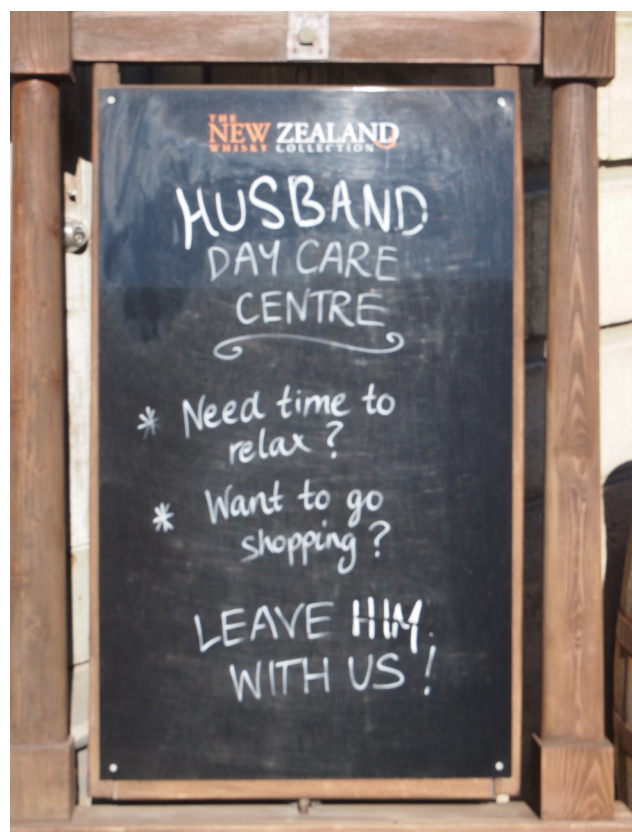 THE
NEW ZEALAND
WHISKY COLLECTION
HUSBAND
DAY CARE
CENTRE
* Need time to
relax ?
* Want to go
shopping ?
LEAVE HIM
WITH US !